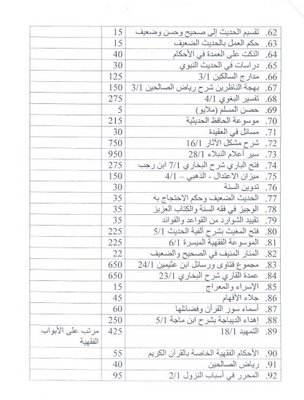 62. تقسيم الحديث إلى صحيح وحسن وضعيف 15
63. حكم العمل بالحديث الضعيف 15
64. النكت على العمدة في الأحكام 40
65. دراسات في الحديث النبوي 30
66. مدارج السالكين 3/1 125
67. بهجة الناظرين شرح رياض الصالحين 3/1 150
68. تفسير البغوي 4/1 275
69. حصن المسلم (ملايو) 5
70. موسوعة الحافظ الحديثية 215
71. مسائل في العقيدة 30
72. شرح مشكل الآثار 16/1 750
73. سير أعلام النبلاء 28/1 950
74. فتح الباري شرح البخاري 7/1 ابن رجب 275
75. ميزان الاعتدال - الذهبي – 4/1 150
76. تدوين السنة 30
77. الحديث الضعيف وحكم الاحتجاج به 35
78. الوجيز في فقه السنة والكتاب العزيز 35
79. تقييد الشوارد من القواعد والفوائد 35
80. فتح المغيث بشرح ألفية الحديث 5/1 225
81. الموسوعة الفقهية الميسرة 6/1 225
82. المنار المنيف في الصحيح والضعيف 22
83. مجموع فتاوى ورسائل ابن عثيمين 24/1 650
84. عمدة القاري شرح البخاري 23/1 650
85. الإسراء والمعراج 15
86. جلاء الأفهام 45
87. أسماء سور القرآن وفضائلها 60
88. إهداء الديباجة بشرح ابن ماجة 5/1 250
89. التمهيد 18/1 425 مرتب على الأبواب الفقهية
90. الأحكام الفقهية الخاصة بالقرآن الكريم 55
91. رياض الصالحين 40
92. المحرر في أسباب النزول 2/1 95